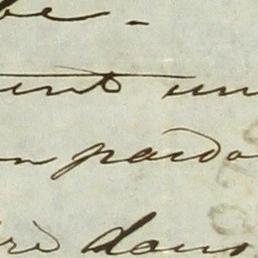 be. -
ent un
n pardo
rè dans